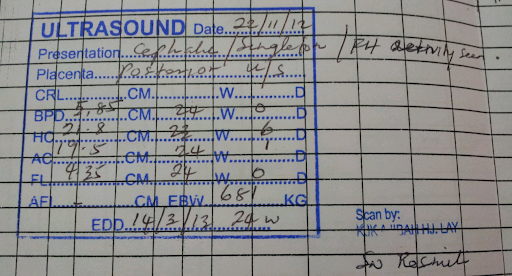 ULTRASOUND Date 22/11/12
Presentation Cephalic / Singleton / FH activity seen.
Placenta Posterior u/s
CRL CM W D
BPD 5.85 CM 24 W 0 D
HC 21.8 CM 23 W 6 D
AC 19.5 CM 24 W 1 D
FL 4.35 CM 24 W 0 D
AFI - CM EBW 681 KG
EDD 14/3/13 24 W
Scan by:
HJ. LAY